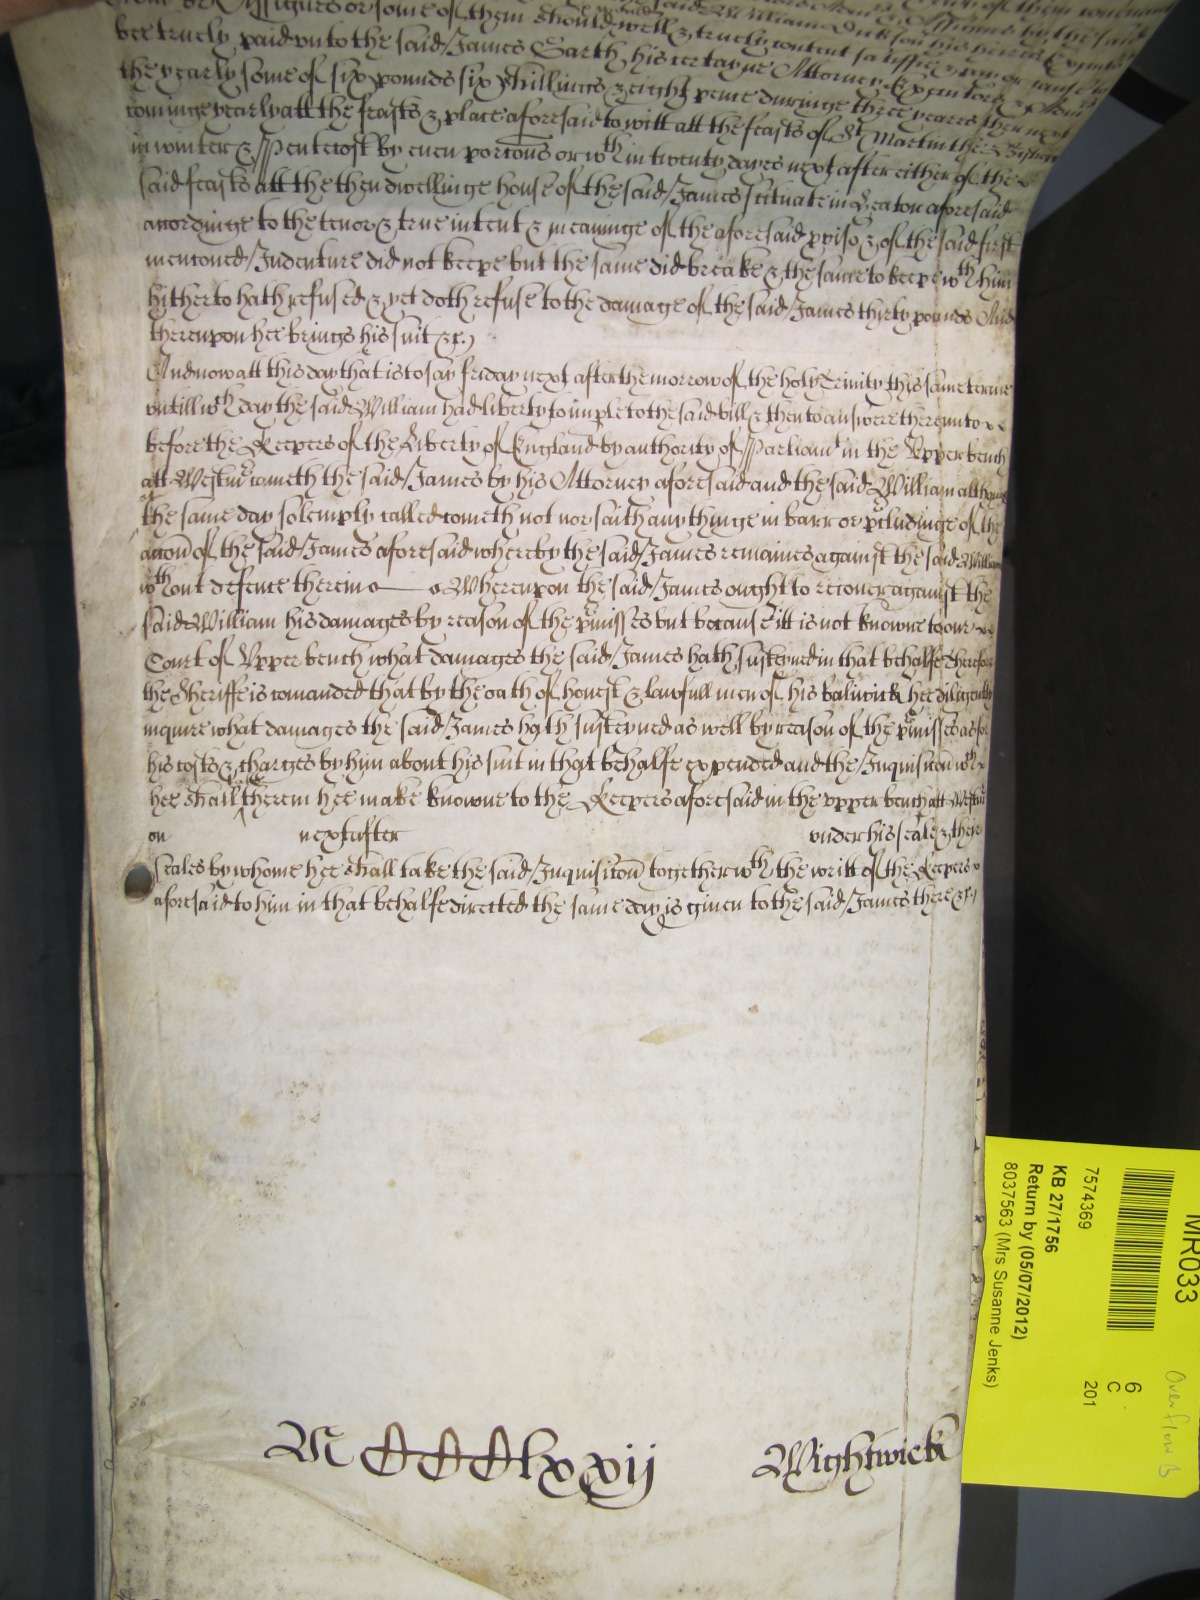 Assignes or some of them should well & truely content satisfie & pay or cause to
bee truely paid unto the said James Garth his certayne Attorney Executors
the yearly some of six pounds six shillings & eight pence duringe three yeares then next
cominge yearly att the feasts & place aforesaid to witt att the feasts of St Martin the Bishop
in winter & Pentecost by even porcons or wth in twenty dayes next after either of the
said feasts att the then dwellinge house of the said James scituate in aforesaid
accordinge to the tenor & true intent & meaninge of the aforesaid pviso & of the said first
mencioned Indenture did not keepe but the same did breake & the same to keepe wth him
hitherto hath refused & yet doth refuse to the damage of the said James thirty pounds And
thereupon hee brings his suit &c
And now att this day that is to say friday next after the morrow of the holy Trinity this same terme
untill wch day the said William had liberty to imple to the said bill & then to answere thereunto
before the Keepers of the Liberty of England by authority of Parliamt in the Upper bench
att Westmr cometh the said James by his Attorney aforesaid and the said William although
the same day solemply called cometh not nor saith any thinge in barr or pcludinge of the
accon of the said James aforesaid whereby the said James remaines against the said William
wthout defence therein Whereupon the said James ought to recover against the
said William his damages by reason of the pmisses but because itt is not knowne to our
Court of Upper bench what damages the said James hath susteyned in that behalfe therefore
the Sheriffe is comanded that by the oath of honest & lawfull men of his baliwick hee diligently
inquire what damages the said James hath susteyned as well by reason of the pmisses as for
his costs & charges by him about his suit in that behalfe expended and the Inquisicon wch
hee shall therein hee make knowne to the Keepers aforesaid in the upper bench att Westmr
on next after under his seale & their
seales by whome hee shall take the said Inquisicon together wth the writt of the Keepers
aforesaid to him in that behalfe directed the same day is given to the said James there &c
36
M CCC lxxij Wightwick
MR033
Overflow B
6
C
201
7574369
KB 27/1756
Return by (05/07/2012)
8037563 (Mrs Susanne Jenks)